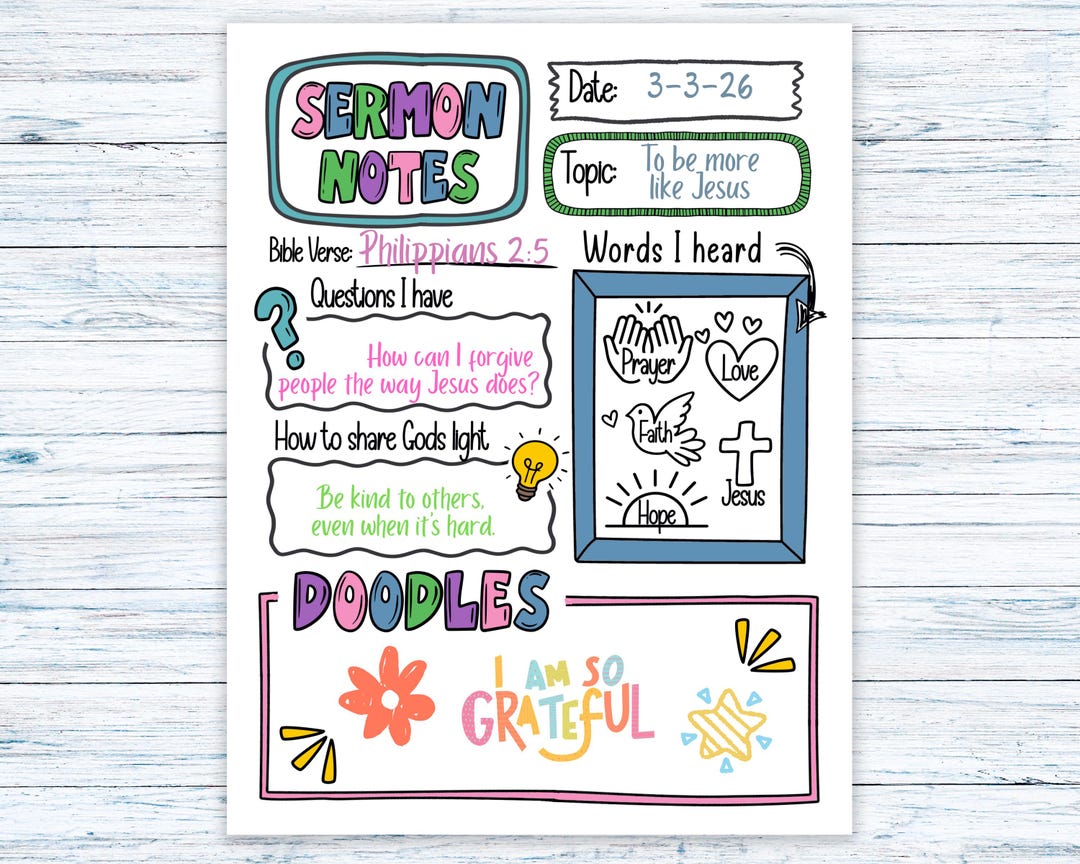 SERMON
NOTES
Date: 3-3-26
Topic: To be more
like Jesus
Bible Verse: Philippians 2:5
Questions I have
How can I forgive
people the way Jesus does?
How to share Gods light
Be kind to others,
even when it's hard.
Words I heard
Prayer
Love
Faith
Jesus
Hope
DOODLES
I AM SO
GRATEFUL